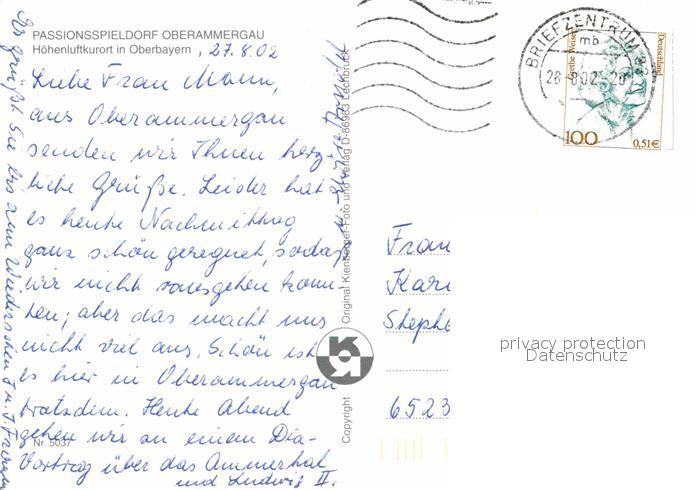 PASSIONSSPIELDORF OBERAMMERGAU
Höhenluftkurort in Oberbayern , 27.8.02
Liebe Frau Mann,
aus Oberammergau
senden wir Ihnen herz-
liche Grüße. Leider hat
es heute Nachmittag
ganz schön geregnet, sodaß
wir nicht rausgehen konn-
ten; aber das macht uns
nicht viel aus. Schön ist
es hier in Oberammergau
trotzdem. Heute Abend
gehen wir zu einem Dia-
Vortrag über das Ammertal
und Ludwig II.
Nr. 5037
Es grüßt Sie bis zum Wiedersehen
Copyright
Original Kienberger-Foto und Verlag D-86983 Lechbruck
BRIEFZENTRUM 82
mb
28
Deutschland
100
0,51€
Frau
Kari
Stepha
6523
privacy protection
Datenschutz